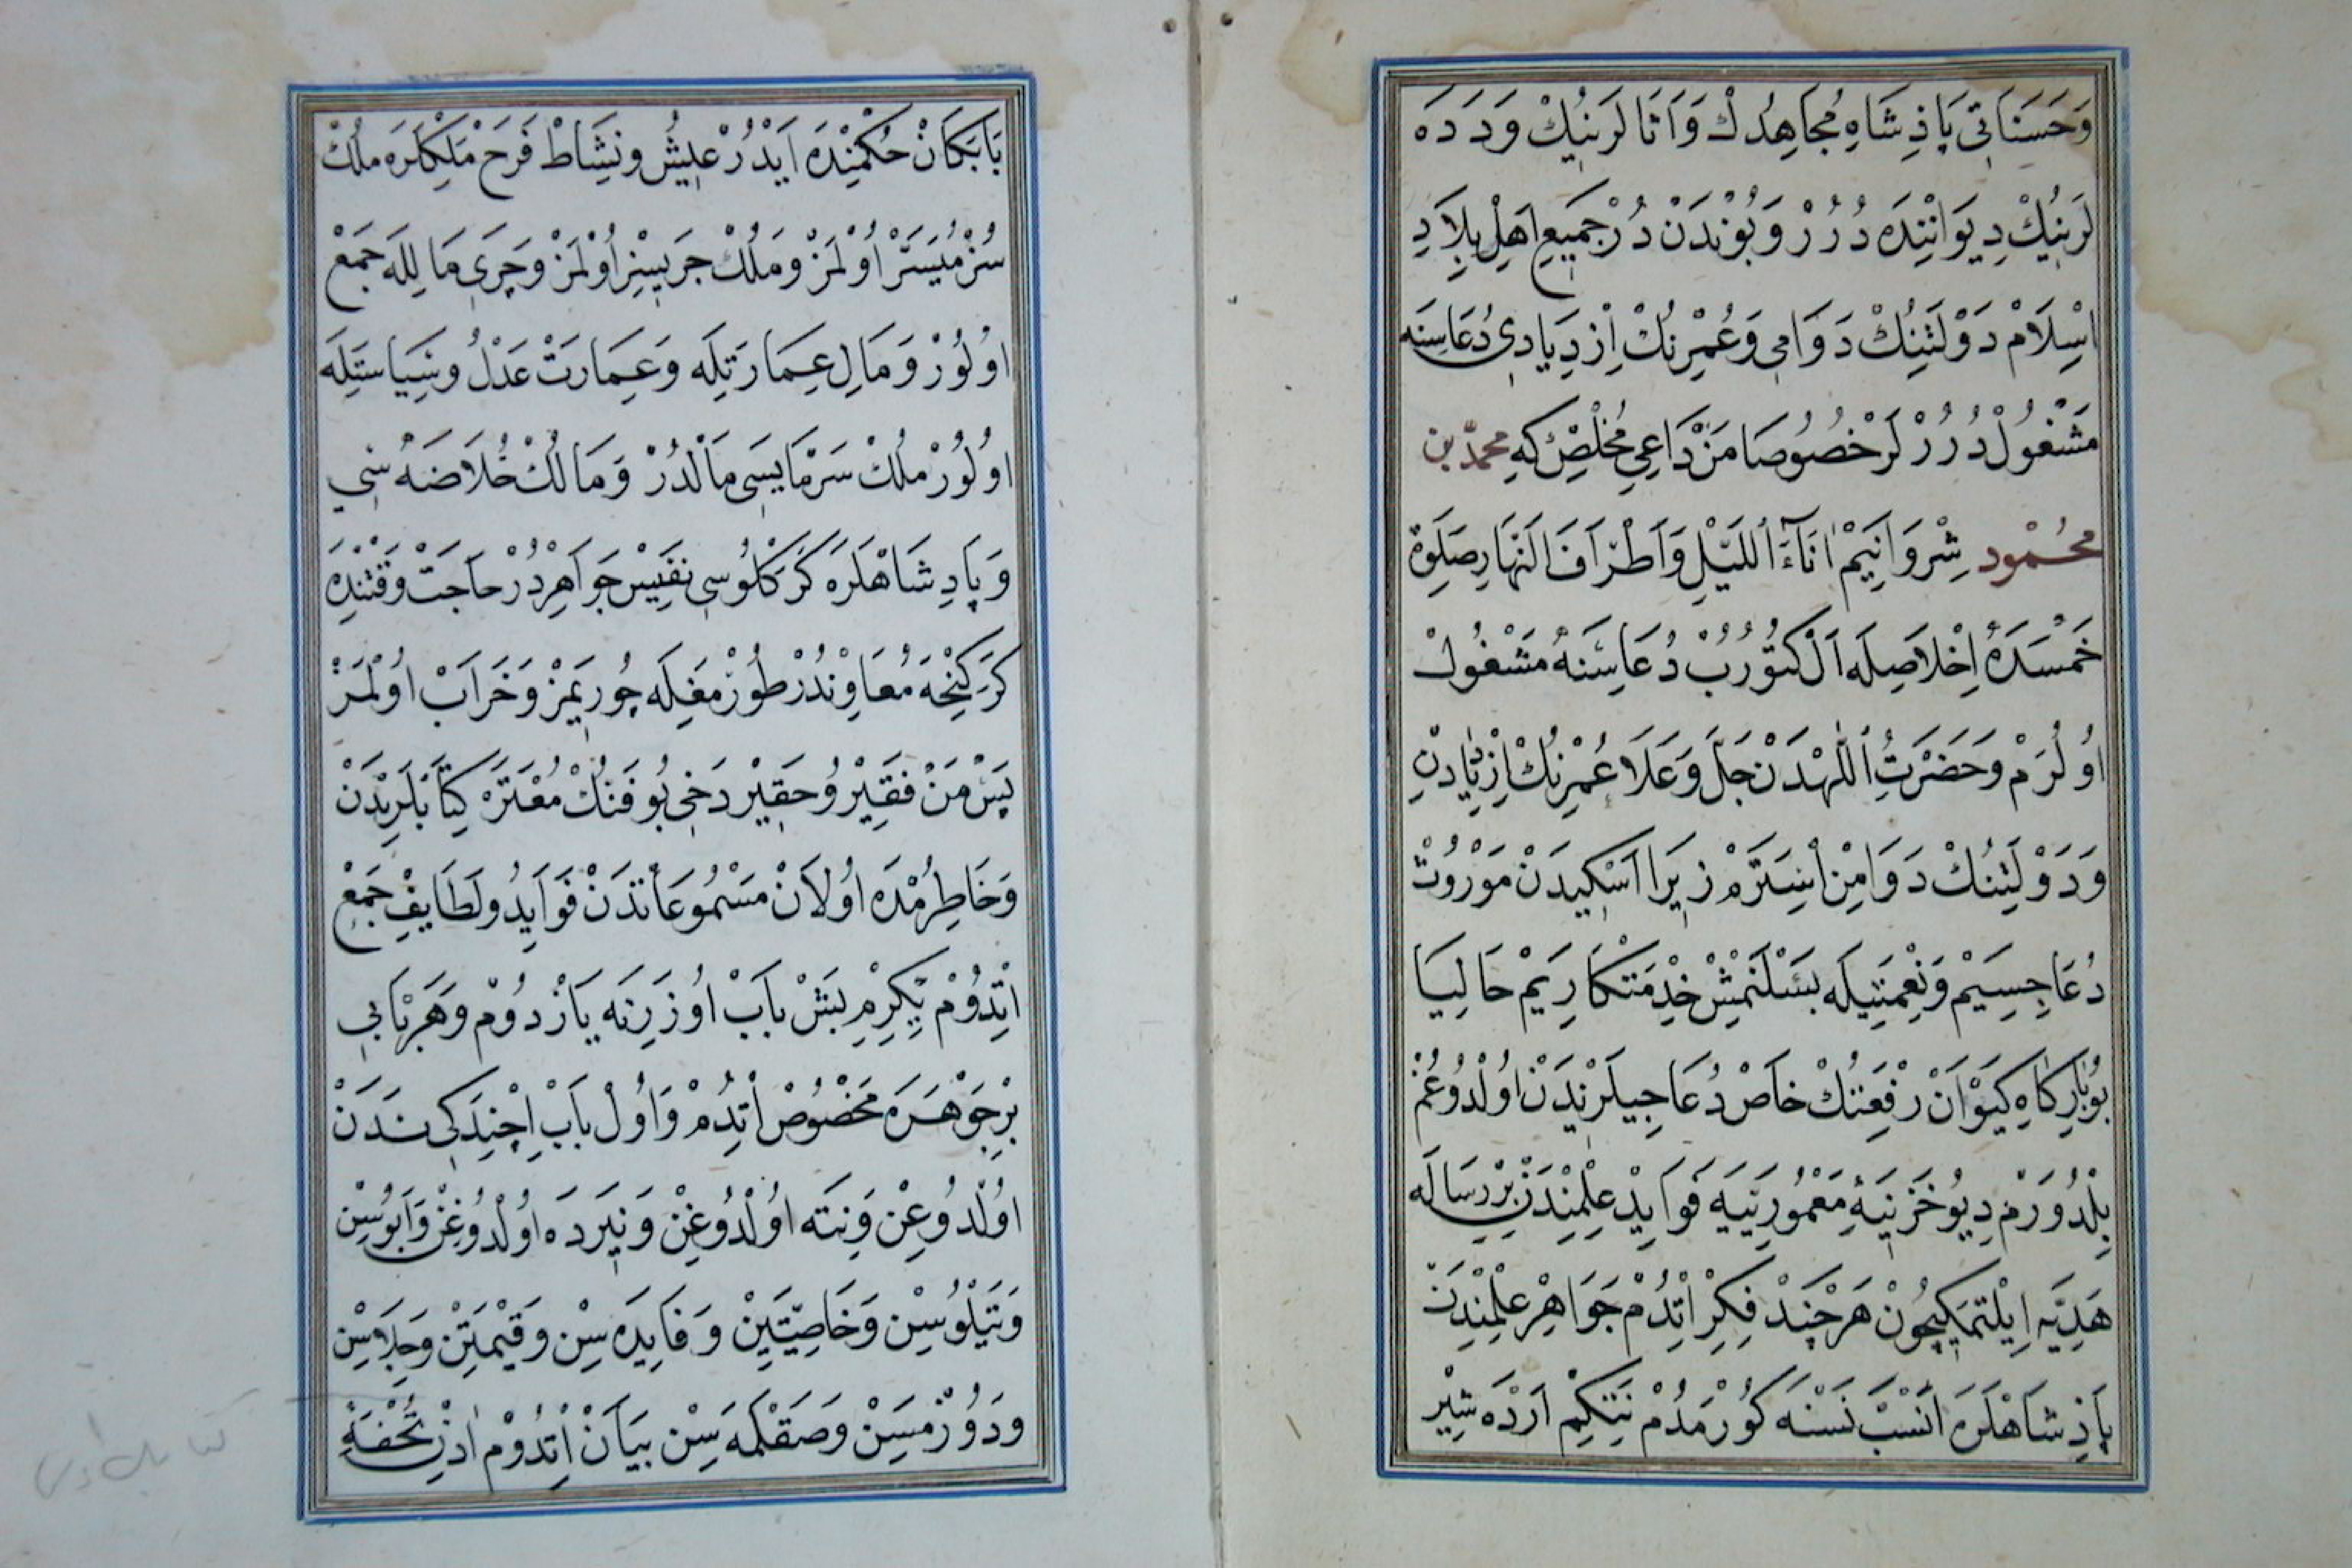 وَحَسَنَاتِی پَاذِشَاهِ مُجَاهِدُكْ وَآتَالَرِنُیكْ وَدَدَه
لَرِنُیكْ دِیوَانِنْدَه دُرُرْ وَبُونْدَنْ دُرْ جَمِیعِ اَهْلِ بِلَادِ
اِسْلَامْ دَوْلَتِنُكْ دَوَامِی وَعُمْرِنُكْ اِزْدِیَادِی دُعَاسِنَه
مَشْغُولْ دُرُرْلَرْ خُصُوصَا مَنْ دَاعِیِ مُخْلِصْ كِه مُحَمَّد بن
مَحْمُود شِرْوَانِیَمْ اٰنَآءَ اللَّیْلِ وَاَطْرَافَ النَّهَارِ صَلٰوةِ
خَمْسَدَه اِخْلَاصِلَه اَلْ كَتُورُبْ دُعَاسِنَه مَشْغُولْ
اُولُرَمْ وَحَضْرَتُ اللّٰهْدَنْ جَلَّ وَعَلَا عُمْرِنُكْ اِزْدِیَادِنِ
وَدَوْلَتِنُكْ دَوَامِنْ اِسْتَرَمْ زِیرَا اَسْكِیدَنْ مَوْرُوثْ
دُعَاجِسِیَمْ وَنِعْمَتِیلَه بَسْلَنْمِشْ خِذْمَتْكَارِیَمْ حَالِیَا
بُو بَارِكَاهِ كَیْوَانْ رِفْعَتُكْ خَاصْ دُعَاجِیلَرِنْدَنْ اُولْدُوغُمْ
بِلْدُورَمْ دِیُو خَزِینَهٔ مَعْمُورَنِیَه فَوَایِدْ عِلْمِنْدَنْ بِرْ رِسَالَه
هَدِیَّه اِیلْتْمَكِیچُونْ هَرْچَنْدْ فِكِرْ اِتْدُمْ جَوَاهِرْ عِلْمِنْدِنْ
پَاذِشَاهْلَرَه اَنْسَبْ نَسْنَه كُورْمَدُمْ نِتَكِمْ اَرْدَهشِیْرِ
بَابَكَانْ حُكْمِنْدَه اَیْدُرْ عَیْشُ ونَشَاطْ فَرَحْ مَلِكْلَرَه مُلْكْ
سُزْ مُیَسَّرْ اُولْمَزْ ومُلْكْ جَرِیسِزْ اُولْمَزْ وجَرِی مَالِلَه جَمْعْ
اُولُورْ وَمَالِ عِمَارَتِلَه وَعِمَارَتْ عَدْلُ وسِیَاسَتِلَه
اُولُورْ مُلْكْ سَرْمَایَسِی مَالْدُرْ وَمَالُكْ خُلَاصَهسِی
وَپَادِشَاهْلَرَه كَرَكْلُوسِی نَفِیسْ جَوَاهِرْدُرْ حَاجَتْ وَقْتِنْدَه
كَرَكِنْجَه مُعَاوِنْدُرْ طُورْمَغِلَه چُورِیمَزْ وَخَرَابْ اُولْمَزْ
پَسْ مَنْ فَقِیْرُ وحَقِیْر دَخِی بُو فَنُكْ مُعْتَبَرْ كِتَابْلَرِنْدَنْ
وَخَاطِرُمْدَه اُولَانْ مَسْمُوعَاتْدَنْ فَوَایِدُ ولَطَایِفْ جَمْعْ
اِتْدُومْ یِكِرْمِ بَشْ بَابْ اُوزَرِنَه یَازْدُومْ وَهَرْ بَابِی
بِرْ جَوْهَرَه مَخْصُوصْ اِتْدُمْ وَاُولْ بَابْ اِچِنْدَكِی نَدَنْ
اُولْدُوغِنْ وَنِتَه اُولْدُوغِنْ وَنِیرَدَه اُولْدُوغِنْ وَاَیُوسِنْ
وَیَتْلُوسِنْ وَخَاصِیَّتِینْ وَفَایِدَهسِنْ وقِیْمَتِنْ وجِلَاسِنْ
ودُوزْمَسِنْ وصَقْلَمَهسِنْ بَیَانْ اِتْدُومْ اَدِنْ تُحْفَهٔ